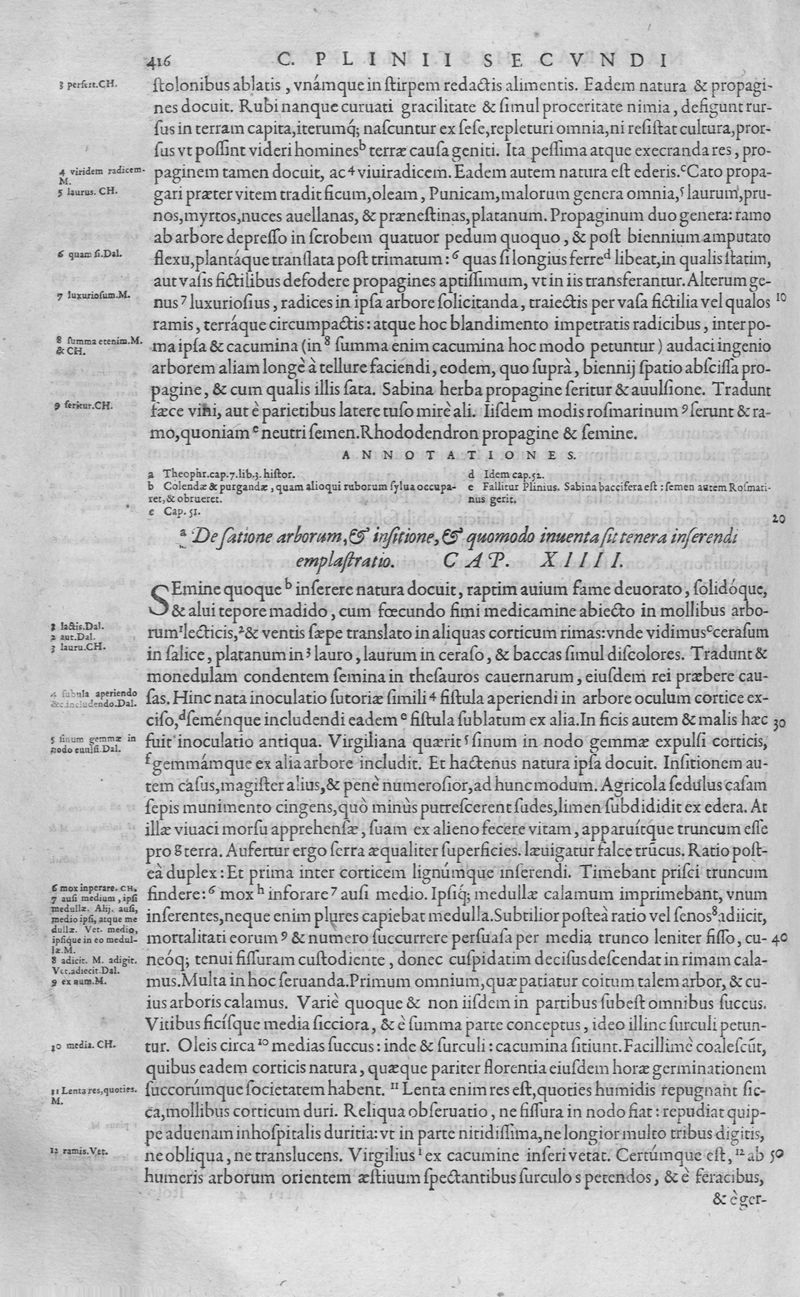 416 C. PLINII SECVNDI
3 perfert.CH.
ſtolonibus ablatis, vnámque in ſtirpem redactis alimentis. Eadem natura & propagi-
nes docuit. Rubi nanque curuati gracilitate & ſimul proceritate nimia, defigunt rur-
ſus in terram capita, iterumq́; naſcuntur ex ſeſe, repleturi omnia, ni reſiſtat cultura, pror-
ſus vt poſſint videri homines ᵇ terræ cauſa geniti. Ita peſſima atque execranda res, pro-
4 viridem radicem.
M.
paginem tamen docuit, ac ⁴ viuiradicem. Eadem autem natura eſt ederis. ᶜCato propa-
5 laurus. CH.
gari præter vitem tradit ficum, oleam, Punicam, malorum genera omnia, ⁵ laurum, pru-
nos, myrtos, nuces auellanas, & præneſtinas, platanum. Propaginum duo genera: ramo
ab arbore depreſſo in ſcrobem quatuor pedum quoquo, & poſt biennium amputato
6 quam ſi.Dal.
flexu, plantáque tranſlata poſt trimatum: ⁶ quas ſi longius ferre ᵈ libeat, in qualis ſtatim,
aut vaſis fictilibus defodere propagines aptiſſimum, vt in iis transferantur. Alterum ge-
7 luxurioſum.M.
nus ⁷ luxurioſius, radices in ipſa arbore ſolicitanda, traiectis per vaſa fictilia vel qualos 10
ramis, terráque circumpactis: atque hoc blandimento impetratis radicibus, inter po-
8 ſumma etenim.M.
& CH.
ma ipſa & cacumina (in ⁸ ſumma enim cacumina hoc modo petuntur) audaci ingenio
arborem aliam longè à tellure faciendi, eodem, quo ſuprà, biennij ſpatio abſciſſa pro-
pagine, & cum qualis illis ſata. Sabina herba propagine ſeritur & auulſione. Tradunt
9 ſeritur.CH.
fæce vini, aut è parietibus latere tuſo mirè ali. Iiſdem modis roſmarinum ⁹ ſerunt & ra-
mo, quoniam ᵉ neutri ſemen. Rhododendron propagine & ſemine.
ANNOTATIONES.
a Theophr.cap.7.lib.3.hiſtor.
b Colendæ & purgandæ, quam alioqui ruborum ſylua occupa-
ret, & obrueret.
c Cap. 51.
d Idem cap.52.
e Fallitur Plinius. Sabina baccifera eſt: ſemen autem Roſmari-
nus gerit.
20
ᵃ De ſatione arborum, & inſitione, & quomodo inuenta ſit tenera inſerendi
emplaſtratio. CAP. XIIII.
SEmine quoque ᵇ inſerere natura docuit, raptim auium fame deuorato, ſolidóque,
& alui tepore madido, cum fœcundo fimi medicamine abiecto in mollibus arbo-
1 lactis.Dal.
2 aut.Dal.
rum ¹ lecticis, ² & ventis ſæpe translato in aliquas corticum rimas: vnde vidimus ᶜ ceraſum
3 lauru.CH.
in ſalice, platanum in ³ lauro, laurum in ceraſo, & baccas ſimul diſcolores. Tradunt &
monedulam condentem ſemina in theſauros cauernarum, eiuſdem rei præbere cau-
4 ſubula aperiendo
&c.includendo.Dal.
ſas. Hinc nata inoculatio ſutoriæ ſimili ⁴ fiſtula aperiendi in arbore oculum cortice ex-
ciſo, ᵈ ſeménque includendi eadem ᵉ fiſtula ſublatum ex alia. In ficis autem & malis hæc 30
5 ſinum gemmæ in
nodo euulſi.Dal.
fuit inoculatio antiqua. Virgiliana quærit ⁵ ſinum in nodo gemmæ expulſi corticis,
ᶠ gemmámque ex alia arbore includit. Et hactenus natura ipſa docuit. Inſitionem au-
tem caſus, magiſter alius, & penè numeroſior, ad hunc modum. Agricola ſedulus caſam
ſepis munimento cingens, quò minùs putreſcerent ſudes, limen ſubdidit ex edera. At
illæ viuaci morſu apprehenſæ, ſuam ex alieno fecere vitam, apparuítque truncum eſſe
pro ᵍ terra. Aufertur ergo ſerra æqualiter ſuperficies. læuigatur falce trũcus. Ratio poſt-
eà duplex: Et prima inter corticem lignúmque inferendi. Timebant priſci truncum
6 mox inperare. CH.
7 auſi medium, ipſi
medullæ. Alij. auſi,
medio ipſi, atque me
dullæ. Vet. medio,
ipſique in eo medul-
læ.M.
findere: ⁶ mox ʰ inforare ⁷ auſi medio. Ipſiq; medullæ calamum imprimebant, vnum
inſerentes, neque enim plures capiebat medulla. Subtilior poſteà ratio vel ſenos ⁸ adiicit,
mortalitati eorum ⁹ & numero ſuccurrere perſuaſa per media trunco leniter fiſſo, cu- 40
8 adicit. M. adigit.
Vet.adiecit.Dal.
9 ex num.M.
neóq; tenui fiſſuram cuſtodiente, donec cuſpidatim deciſus deſcendat in rimam cala-
mus. Multa in hoc ſeruanda. Primum omnium, quæ patiatur coitum talem arbor, & cu-
ius arboris calamus. Variè quoque & non iiſdem in partibus ſubeſt omnibus ſuccus.
Vitibus ficiſque media ſicciora, & è ſumma parte conceptus, ideo illinc ſurculi petun-
10 media. CH.
tur. Oleis circa ¹⁰ medias ſuccus: inde & ſurculi: cacumina ſitiunt. Facillimè coaleſcũt,
quibus eadem corticis natura, quæque pariter florentia eiuſdem horæ germinationem
11 Lenta res,quoties.
M.
ſuccorúmque ſocietatem habent. ¹¹ Lenta enim res eſt, quoties humidis repugnant ſic-
ca, mollibus corticum duri. Reliqua obſeruatio, ne fiſſura in nodo fiat: repudiat quip-
pe aduenam inhoſpitalis duritia: vt in parte nitidiſſima, ne longior multo tribus digitis,
12 ramis.Vet.
ne obliqua, ne translucens. Virgilius ⁱ ex cacumine inſeri vetat. Certúmque eſt, ¹² ab 50
humeris arborum orientem æſtiuum ſpectantibus ſurculos petendos, & è feracibus,
& è ger-